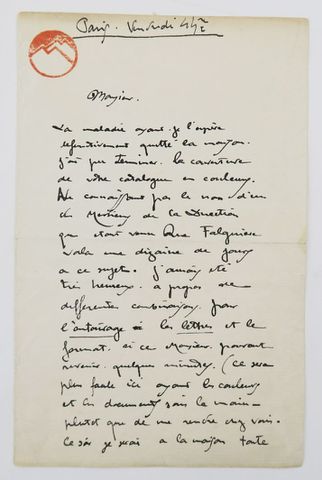 Paris. Vendredi
Monsieur.
La maladie ayant, je l'espère
définitivement quitté la maison.
j'ai pu terminer. la couverture
de votre catalogue en couleurs.
Ne connaissant pas le nom
du Monsieur de la Direction
qui était venu Rue Falguière
voilà une dizaine de jours
a ce sujet. j'aurais été
très heureux. a propos de
différentes combinaisons. pour
l'entourage les lettres et le
format. si ce Monsieur. pouvait
revenir. quelques minutes. (ce sera
plus facile ici ayant les couleurs
et les documents sous la main –
plutot que de me rendre chez vous.
Ce soir je serai a la maison toute